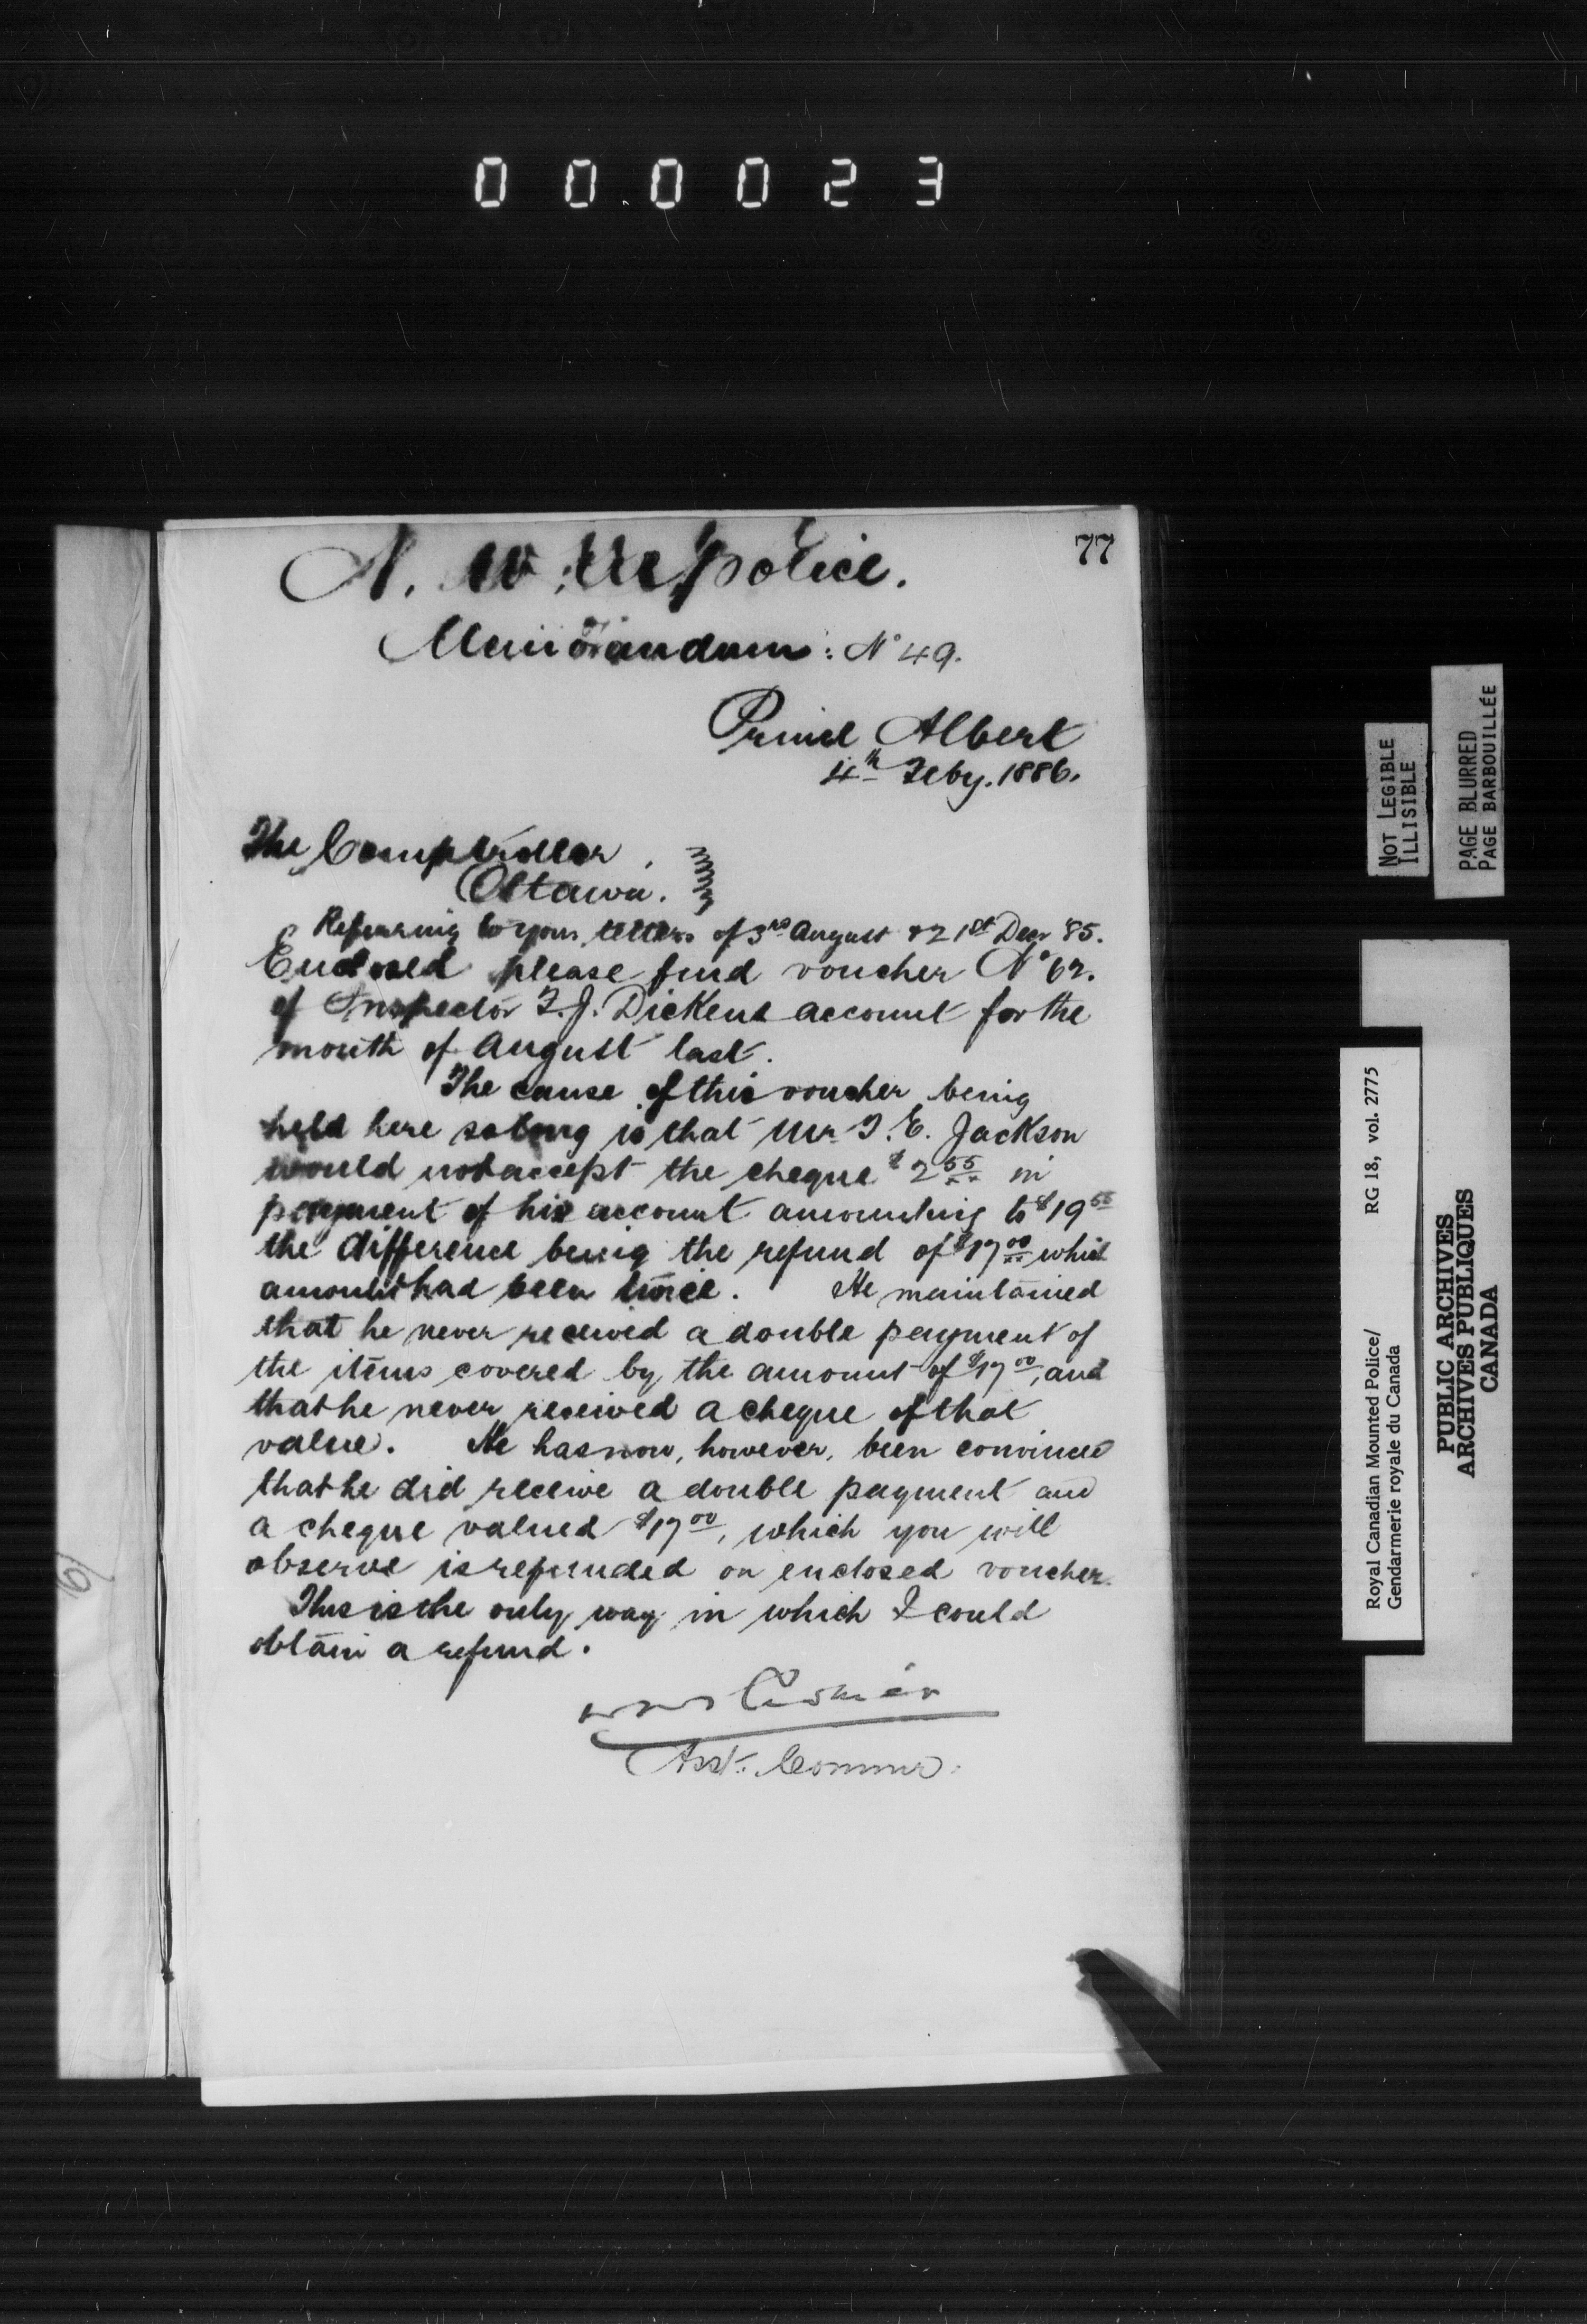 000023
77
N. W. M. Police.
Memorandum: No 49.
Prince Albert
4th Feby. 1886.
The Comptroller
Ottawa.
Referring to your letters of 3rd August & 21st Decr '85.
Enclosed please find voucher No 62.
of Inspector F. J. Dickens account for the
month of August last.
The cause of this voucher being
held here so long is that Mr T. E. Jackson
would not accept the cheque $2 55 in
payment of his account amounting to $19 55
the difference being the refund of $17 00 which
amount had been twice. He maintained
that he never received a double payment of
the items covered by the amount of $17 00, and
that he never received a cheque of that
value. He has now, however, been convinced
that he did receive a double payment and
a cheque valued $17 00, which you will
observe is refunded on enclosed voucher.
This is the only way in which I could
obtain a refund.
Asst. Commr.
NOT LEGIBLE
ILLISIBLE
PAGE BLURRED
PAGE BARBOUILLÉE
Royal Canadian Mounted Police/ RG 18, vol. 2775
Gendarmerie royale du Canada
PUBLIC ARCHIVES
ARCHIVES PUBLIQUES
CANADA